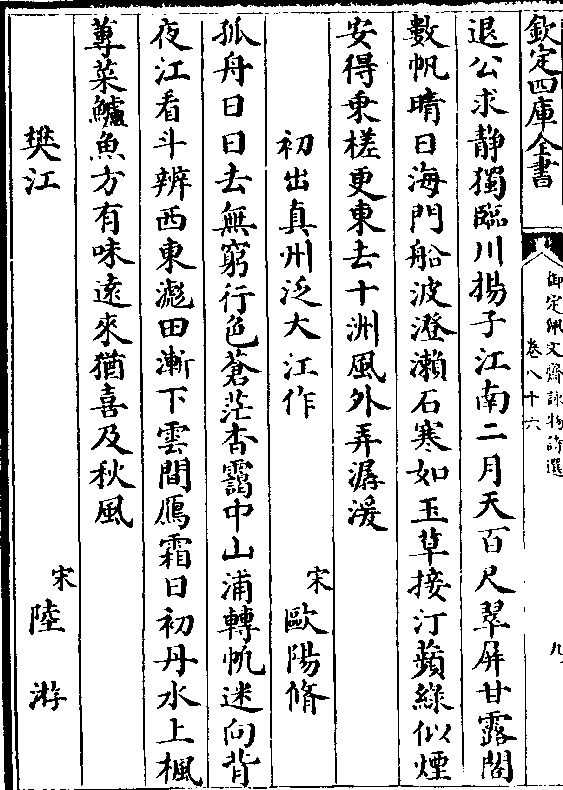 欽定四庫全書
御定佩文齋詠物詩選
卷八十六
九
退公求静獨臨川揚子江南二月天百尺翠屏甘露閣
數帆晴日海門船波澄瀨石寒如玉草接汀蘋綠似煙
安得乗槎更東去十洲風外弄潺湲
初出真州泛大江作
宋歐陽脩
孤舟日日去無窮行色蒼茫杳靄中山浦轉帆迷向背
夜江看斗辨西東滮田漸下雲間鴈霜日初丹水上楓
蓴菜鱸魚方有味遠來猶喜及秋風
樊江
宋陸游